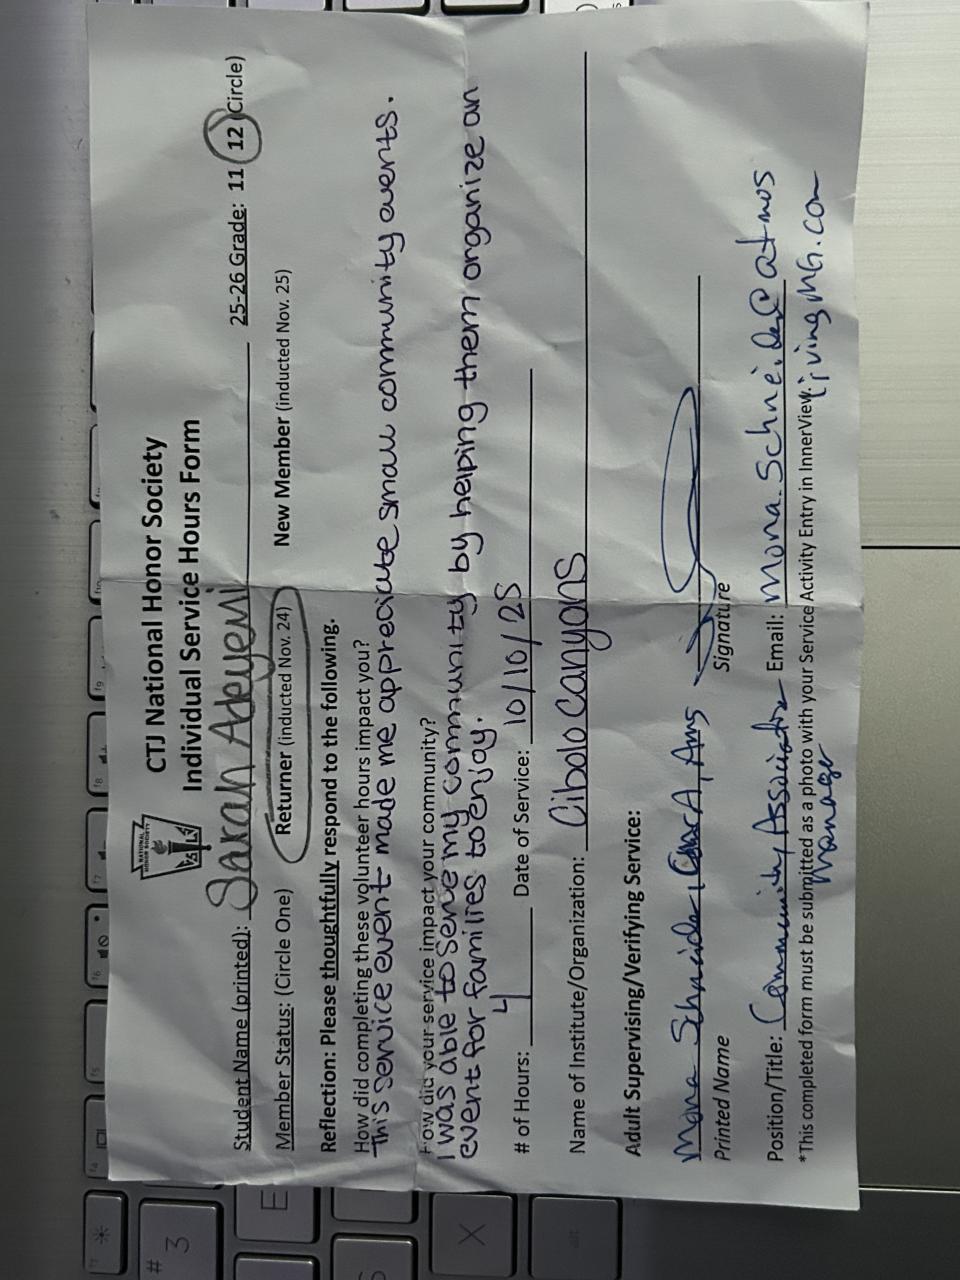 CTJ National Honor Society
Individual Service Hours Form
NATIONAL HONOR SOCIETY
Student Name (printed): Sarah Adeyemi 25-26 Grade: 11 12 (Circle)
Member Status: (Circle One) Returner (inducted Nov. 24) New Member (inducted Nov. 25)
Reflection: Please thoughtfully respond to the following.
How did completing these volunteer hours impact you?
This service event made me appreciate small community events.
How did your service impact your community?
I was able to serve my community by helping them organize an
event for families to enjoy.
# of Hours: 4 Date of Service: 10/10/25
Name of Institute/Organization: Cibolo Canyons
Adult Supervising/Verifying Service:
Mona Schneider, CMCA, AMS
Printed Name Signature
Position/Title: Community Association Email: mona.schneider@atmos
Manager livingMG.com
*This completed form must be submitted as a photo with your Service Activity Entry in InnerView.
# 3
E
X
alt